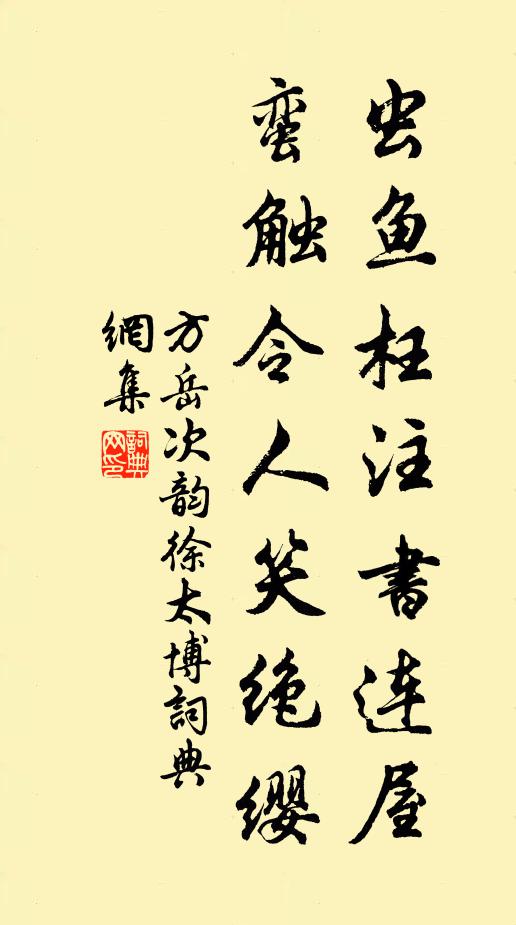 虫鱼枉注書连屋
蛮触令人笑绝缨
方岳次韵徐太博詞典
網集
詞典
网印